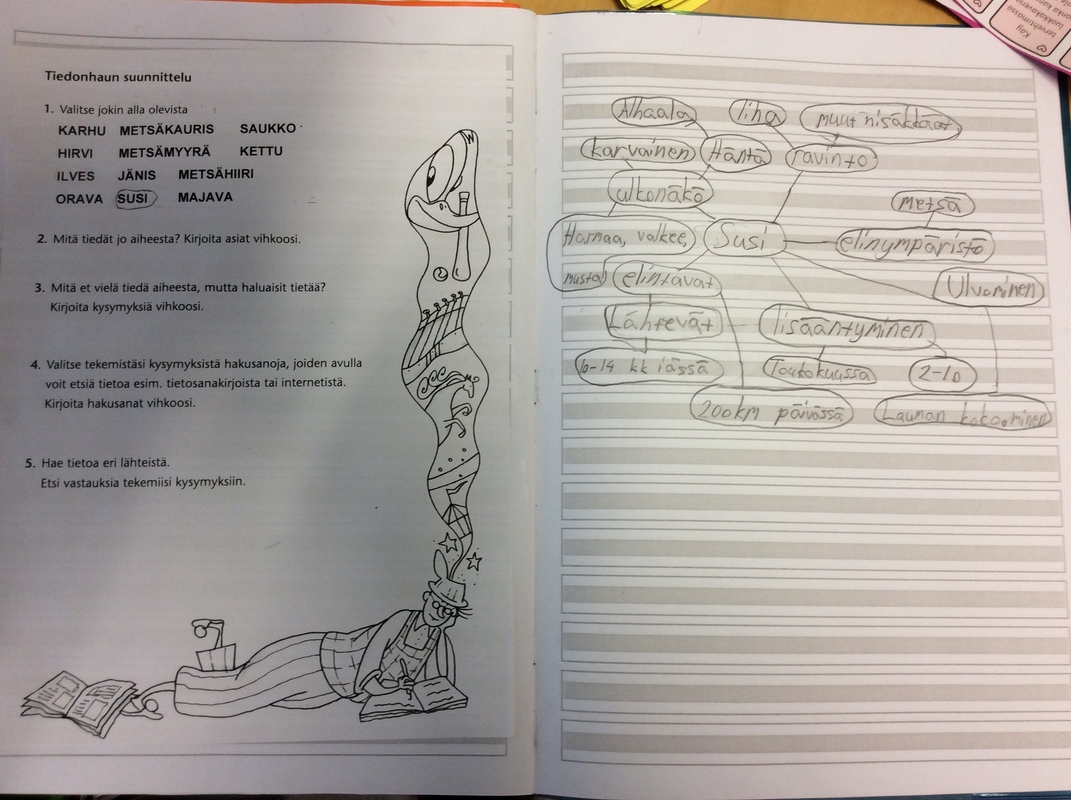 Tiedonhaun suunnittelu
1. Valitse jokin alla olevista
KARHU METSÄKAURIS SAUKKO
HIRVI METSÄMYYRÄ KETTU
ILVES JÄNIS METSÄHIIRI
ORAVA SUSI MAJAVA
2. Mitä tiedät jo aiheesta? Kirjoita asiat vihkoosi.
3. Mitä et vielä tiedä aiheesta, mutta haluaisit tietää?
Kirjoita kysymyksiä vihkoosi.
4. Valitse tekemistäsi kysymyksistä hakusanoja, joiden avulla
voit etsiä tietoa esim. tietosanakirjoista tai internetistä.
Kirjoita hakusanat vihkoosi.
5. Hae tietoa eri lähteistä.
Etsi vastauksia tekemiisi kysymyksiin.
Alhaala liha muut nisäkkäät
karvainen Häntä ravinto
ulkonäkö metsä
Harmaa, valkee, Susi elinympäristö
musta elintavat Ulvominen
Lähtevät lisääntyminen
6-14 kk iässä Toukokuussa 2-10
200km päivässä Lauman kokoominen
Käy
tervehtimässä